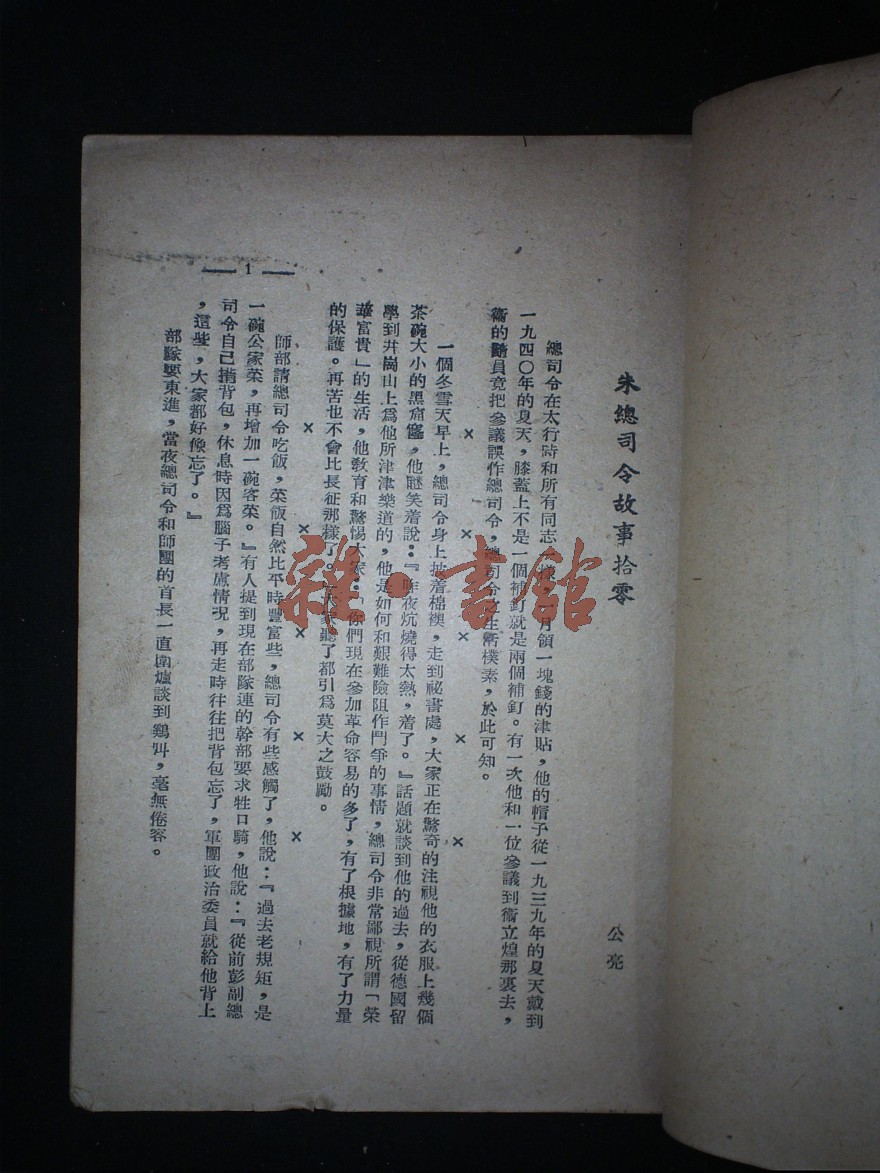 朱總司令故事拾零
公亮
總司令在太行時和所有同志一樣,一月領一塊錢的津貼,他的帽子從一九三九年的夏天戴到
一九四〇年的夏天,膝蓋上不是一個補釘就是兩個補釘。有一次他和一位參議到衞立煌那裏去,
衞的隨員竟把參議誤作總司令,總司令之生活樸素,於此可知。
× × × × ×
一個冬雪天早上,總司令身上披着棉襖,走到祕書處,大家正在驚奇的注視他的衣服上幾個
茶碗大小的黑窟窿,他瞇笑着說:『昨夜炕燒得太熱,着了。』話題就談到他的過去,從德國留
學到井崗山上爲他所津津樂道的,他是如何和艱難險阻作鬥爭的事情,總司令非常鄙視所謂「榮
華富貴」的生活,他敎育和驚惕大家:「你們現在參加革命容易的多了,有了根據地,有了力量
的保護。再苦也不會比長征那樣了。」大家聽了都引爲莫大之鼓勵。
× × × × ×
師部請總司令吃飯,菜飯自然比平時豐富些,總司令有些感觸了,他說:『過去老規矩,是
一碗公家菜,再增加一碗客菜。』有人提到現在部隊連的幹部要求牲口騎,他說:『從前彭副總
司令自己揹背包,休息時因爲腦子考慮情况,再走時往往把背包忘了,軍團政治委員就給他背上
,這些,大家都好像忘了。』
部隊要東進,當夜總司令和師團的首長一直圍爐談到鷄叫,毫無倦容。
— 1 —
雜·書館